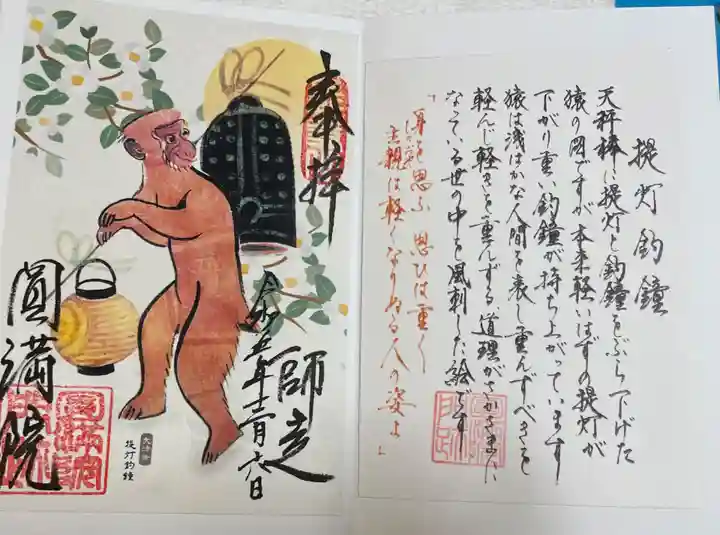 提灯釣鐘
天秤棒に提灯と釣鐘をぶら下げた
猿の図ですが本来軽いはずの提灯が
下がり重い釣鐘が持ち上がっています
猿は浅はかな人間を表し重んずべきを
軽んじ軽きを重んずる道理がさかさまに
なっている世の中を風刺した絵です
「身を思ふ 思ひは重く
主親は軽くなりぬる人の姿よ」
奉拝
師走
令和五年十二月六日
大津絵
提灯釣鐘
圓満院